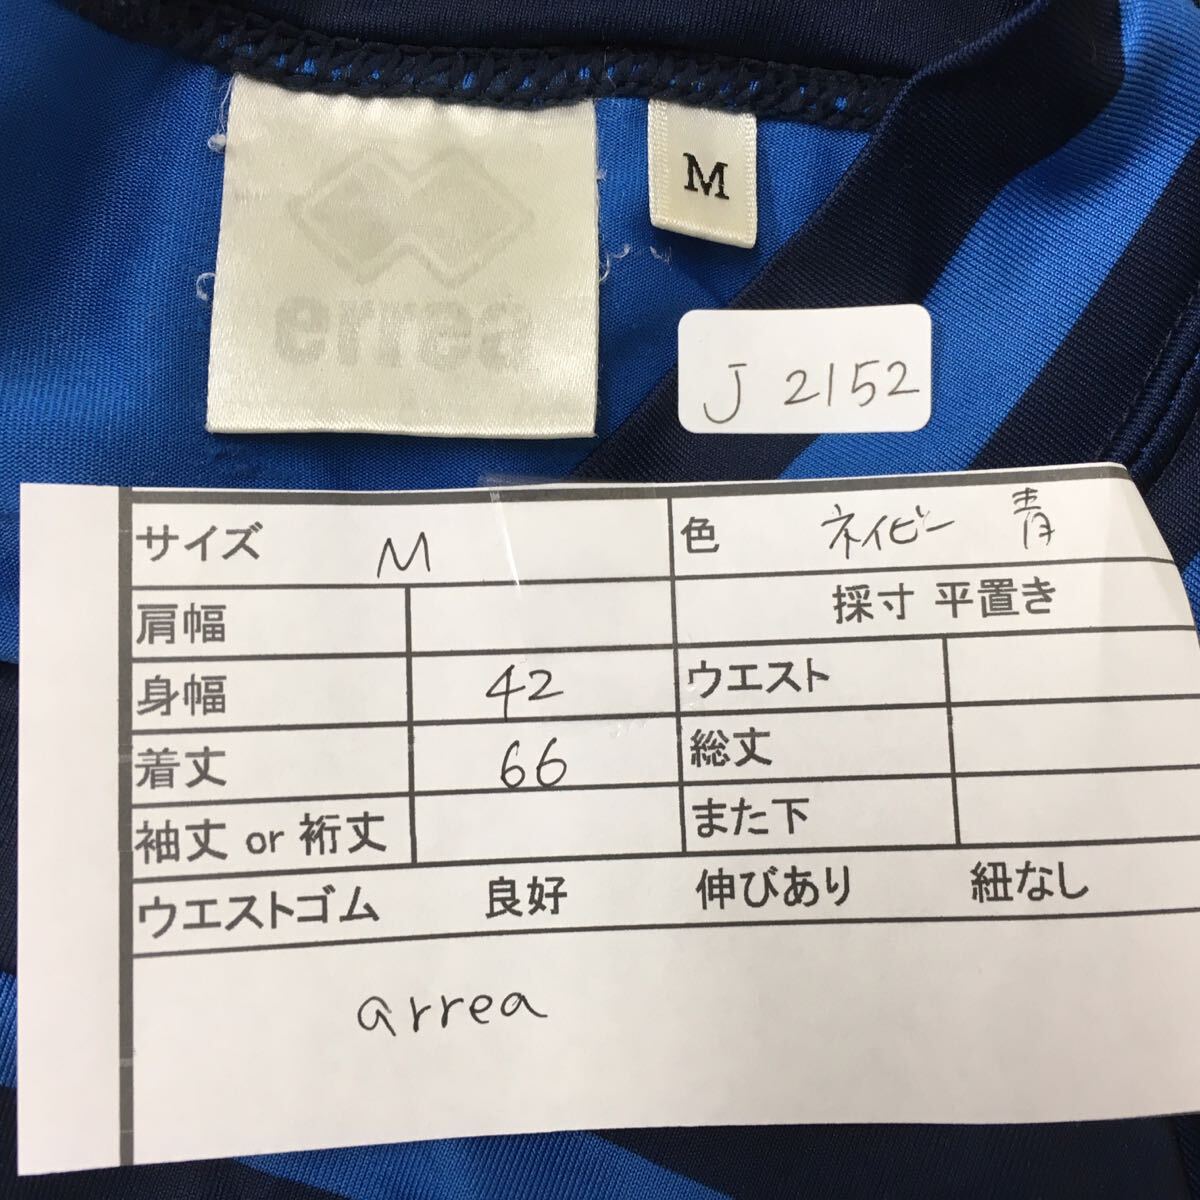 errea
M
J 2152
サイズ M 色 ネイビー 青
肩幅 採寸 平置き
身幅 42 ウエスト
着丈 66 総丈
袖丈 or 裄丈 また下
ウエストゴム 良好 伸びあり 紐なし
arrea